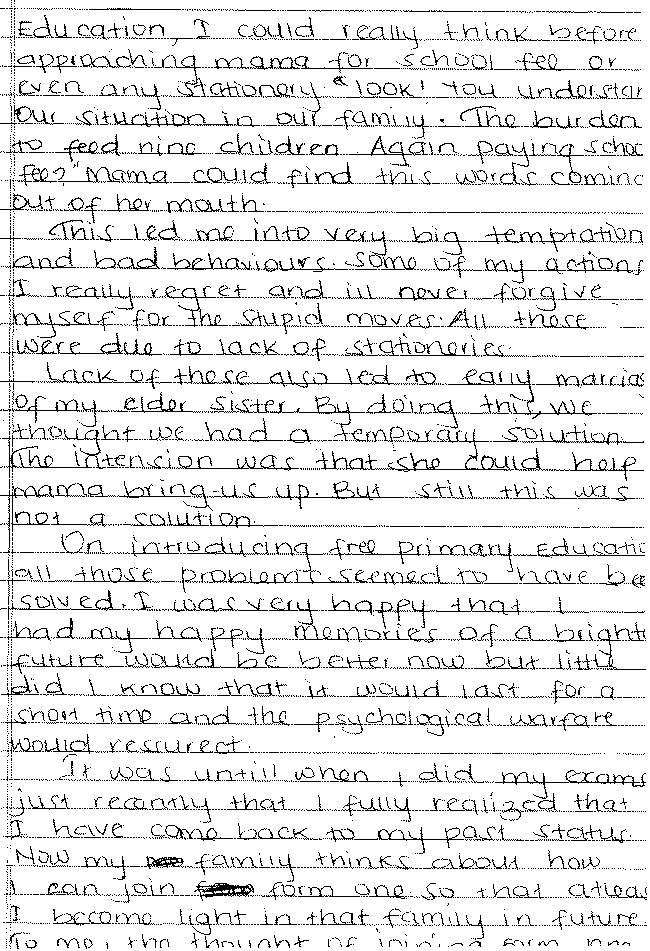 Education, I could really think before
approaching mama for school fee or
even any stationery "look! You understan
Our situation in our family. The burden
to feed nine children Again paying schoo
fee?" Mama could find this words coming
out of her mouth.
This led me into very big temptation
and bad behaviours. Some of my actions
I really regret and ill never forgive
myself for the stupid moves. All these
were due to lack of stationeries.
Lack of these also led to early marria
of my elder sister. By doing this, we
thought we had a temporary solution
The intension was that she could help
mama bring us up. But still this was
not a solution.
On introducing free primary Educatio
all those problems seemed to have be
solved. I was very happy that I
had my happy memories of a bright
future would be better now but little
did I know that it would last for a
short time and the psychological warfare
would ressurect.
It was untill when I did my exams
just recantly that I fully realized that
I have come back to my past status.
Now my family thinks about how
I can join form one so that atleas
I become light in that family in future.
To me, the thought of joining form one